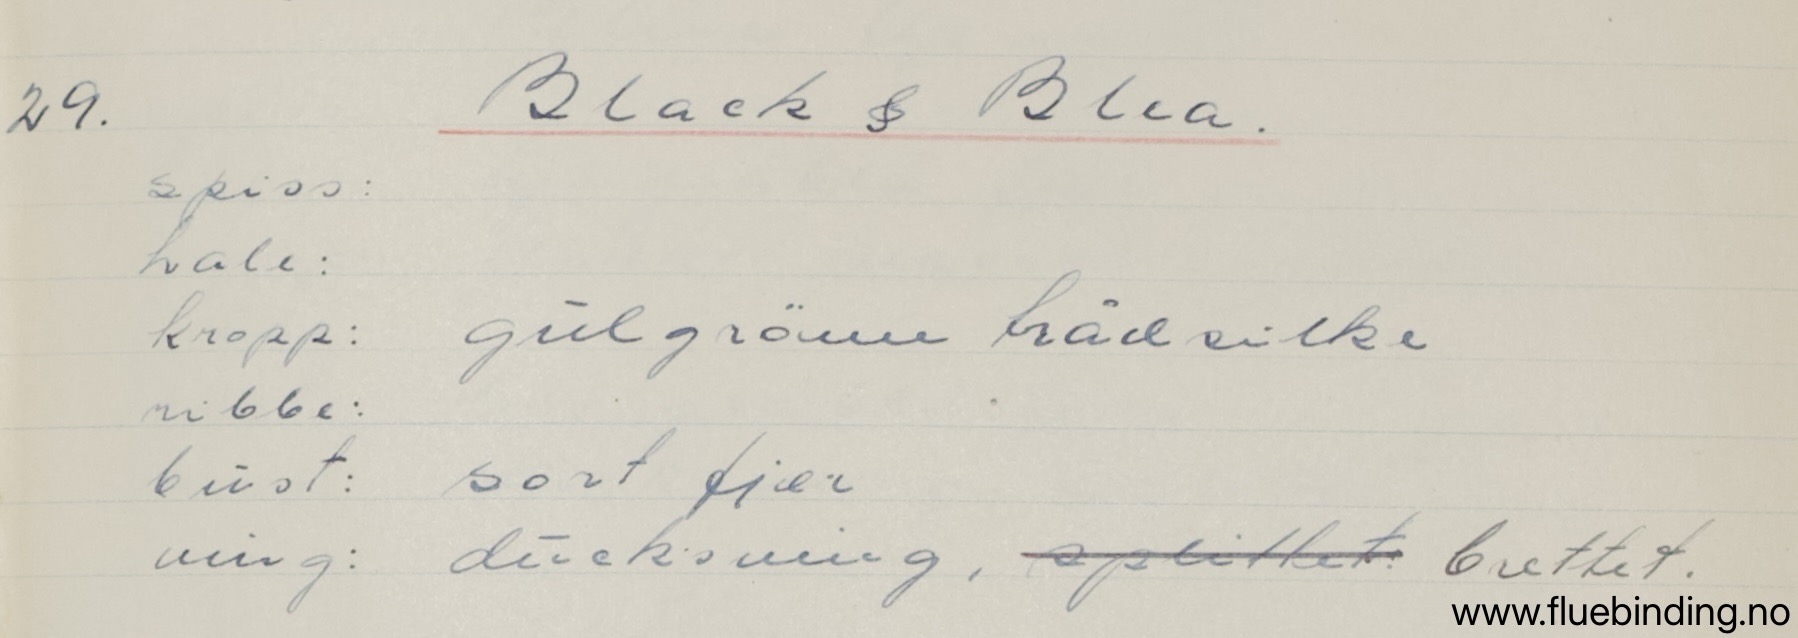 29. Black & Blea.
spiss:
hale:
kropp: gūlgrönn trådsilke
ribbe:
būst: sort fjær
ving: dūcksving, splittet. brettet.
www.fluebinding.no